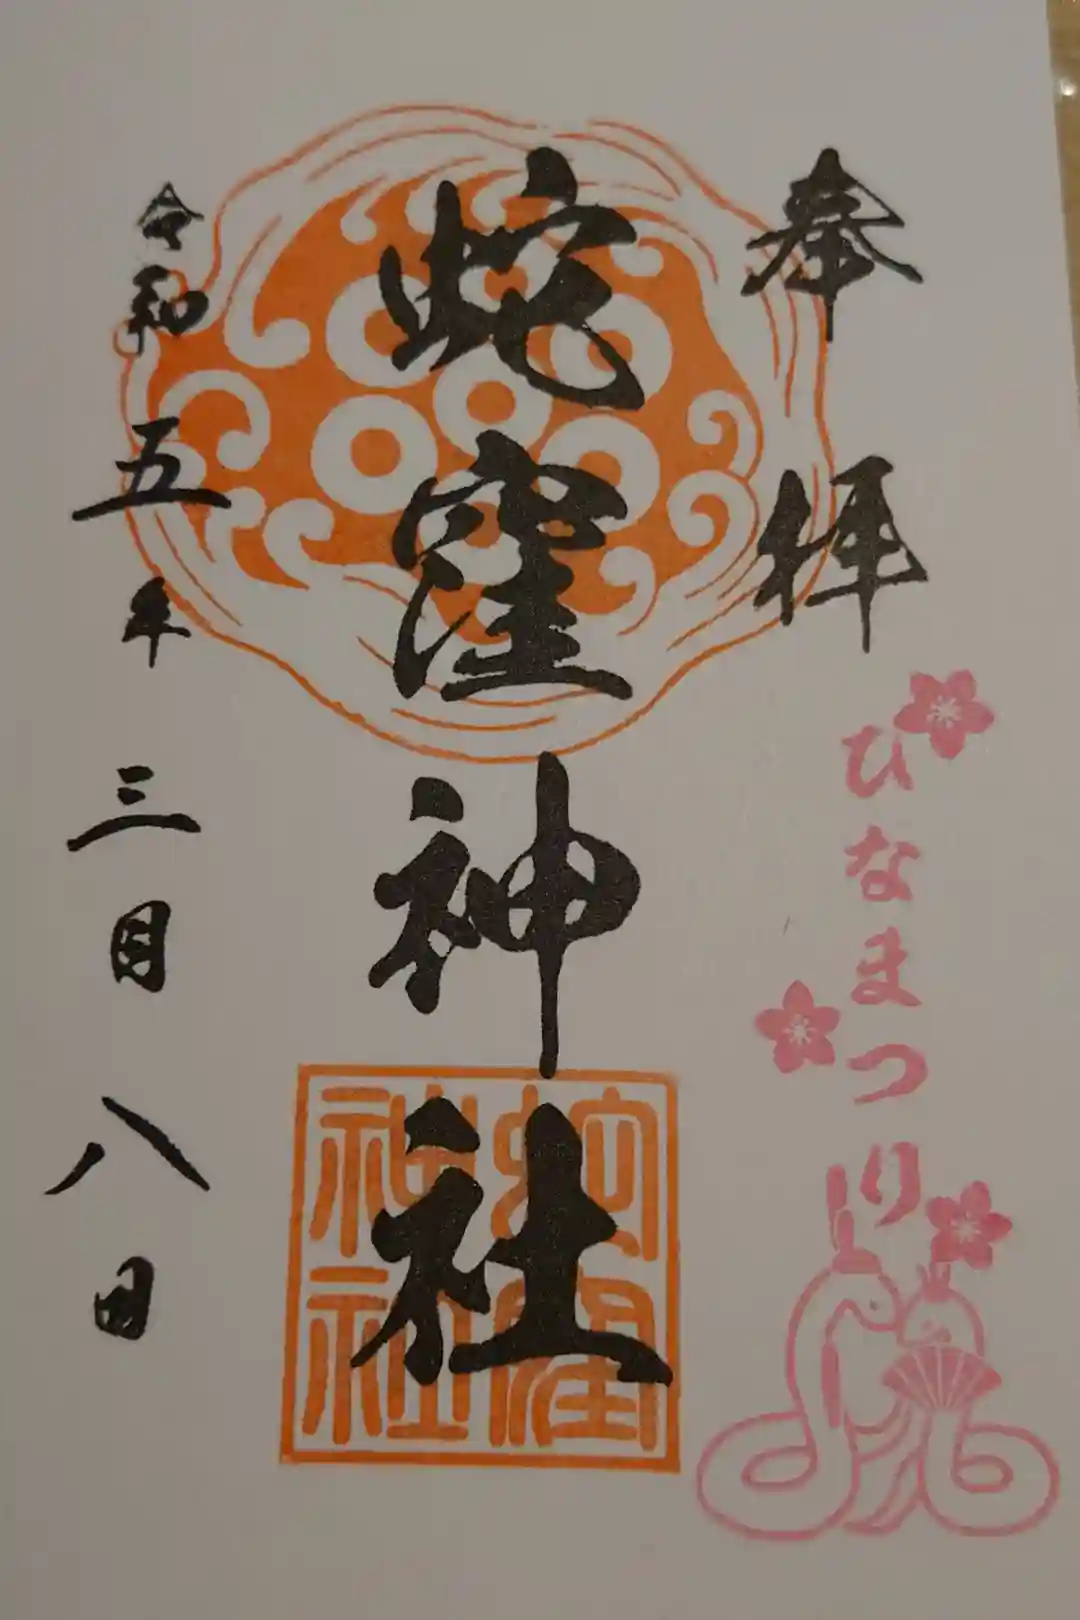 奉拝
ひなまつり
蛇窪神社
蛇窪
神社
令和五年三月八日